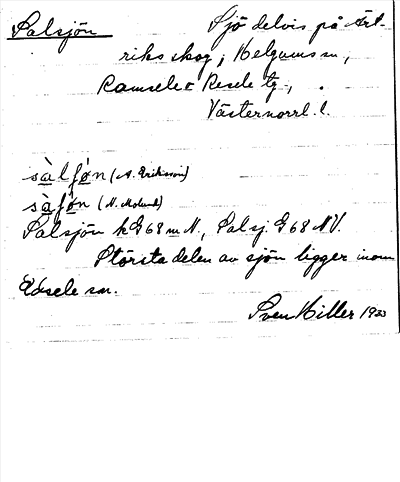 Salsjön Sjö delvis på Ärt-
riks skog, Helgums sn,
Ramsele o Resele tg,
Västernorrl. l.
sàlʃøn (A. Eriksson)
sàʃøn (N. Molund)
Salsjön k G68 m N, Salsj. G68 NV.
Största delen av sjön ligger inom
Edsele sn.
Sven Hiller 1933